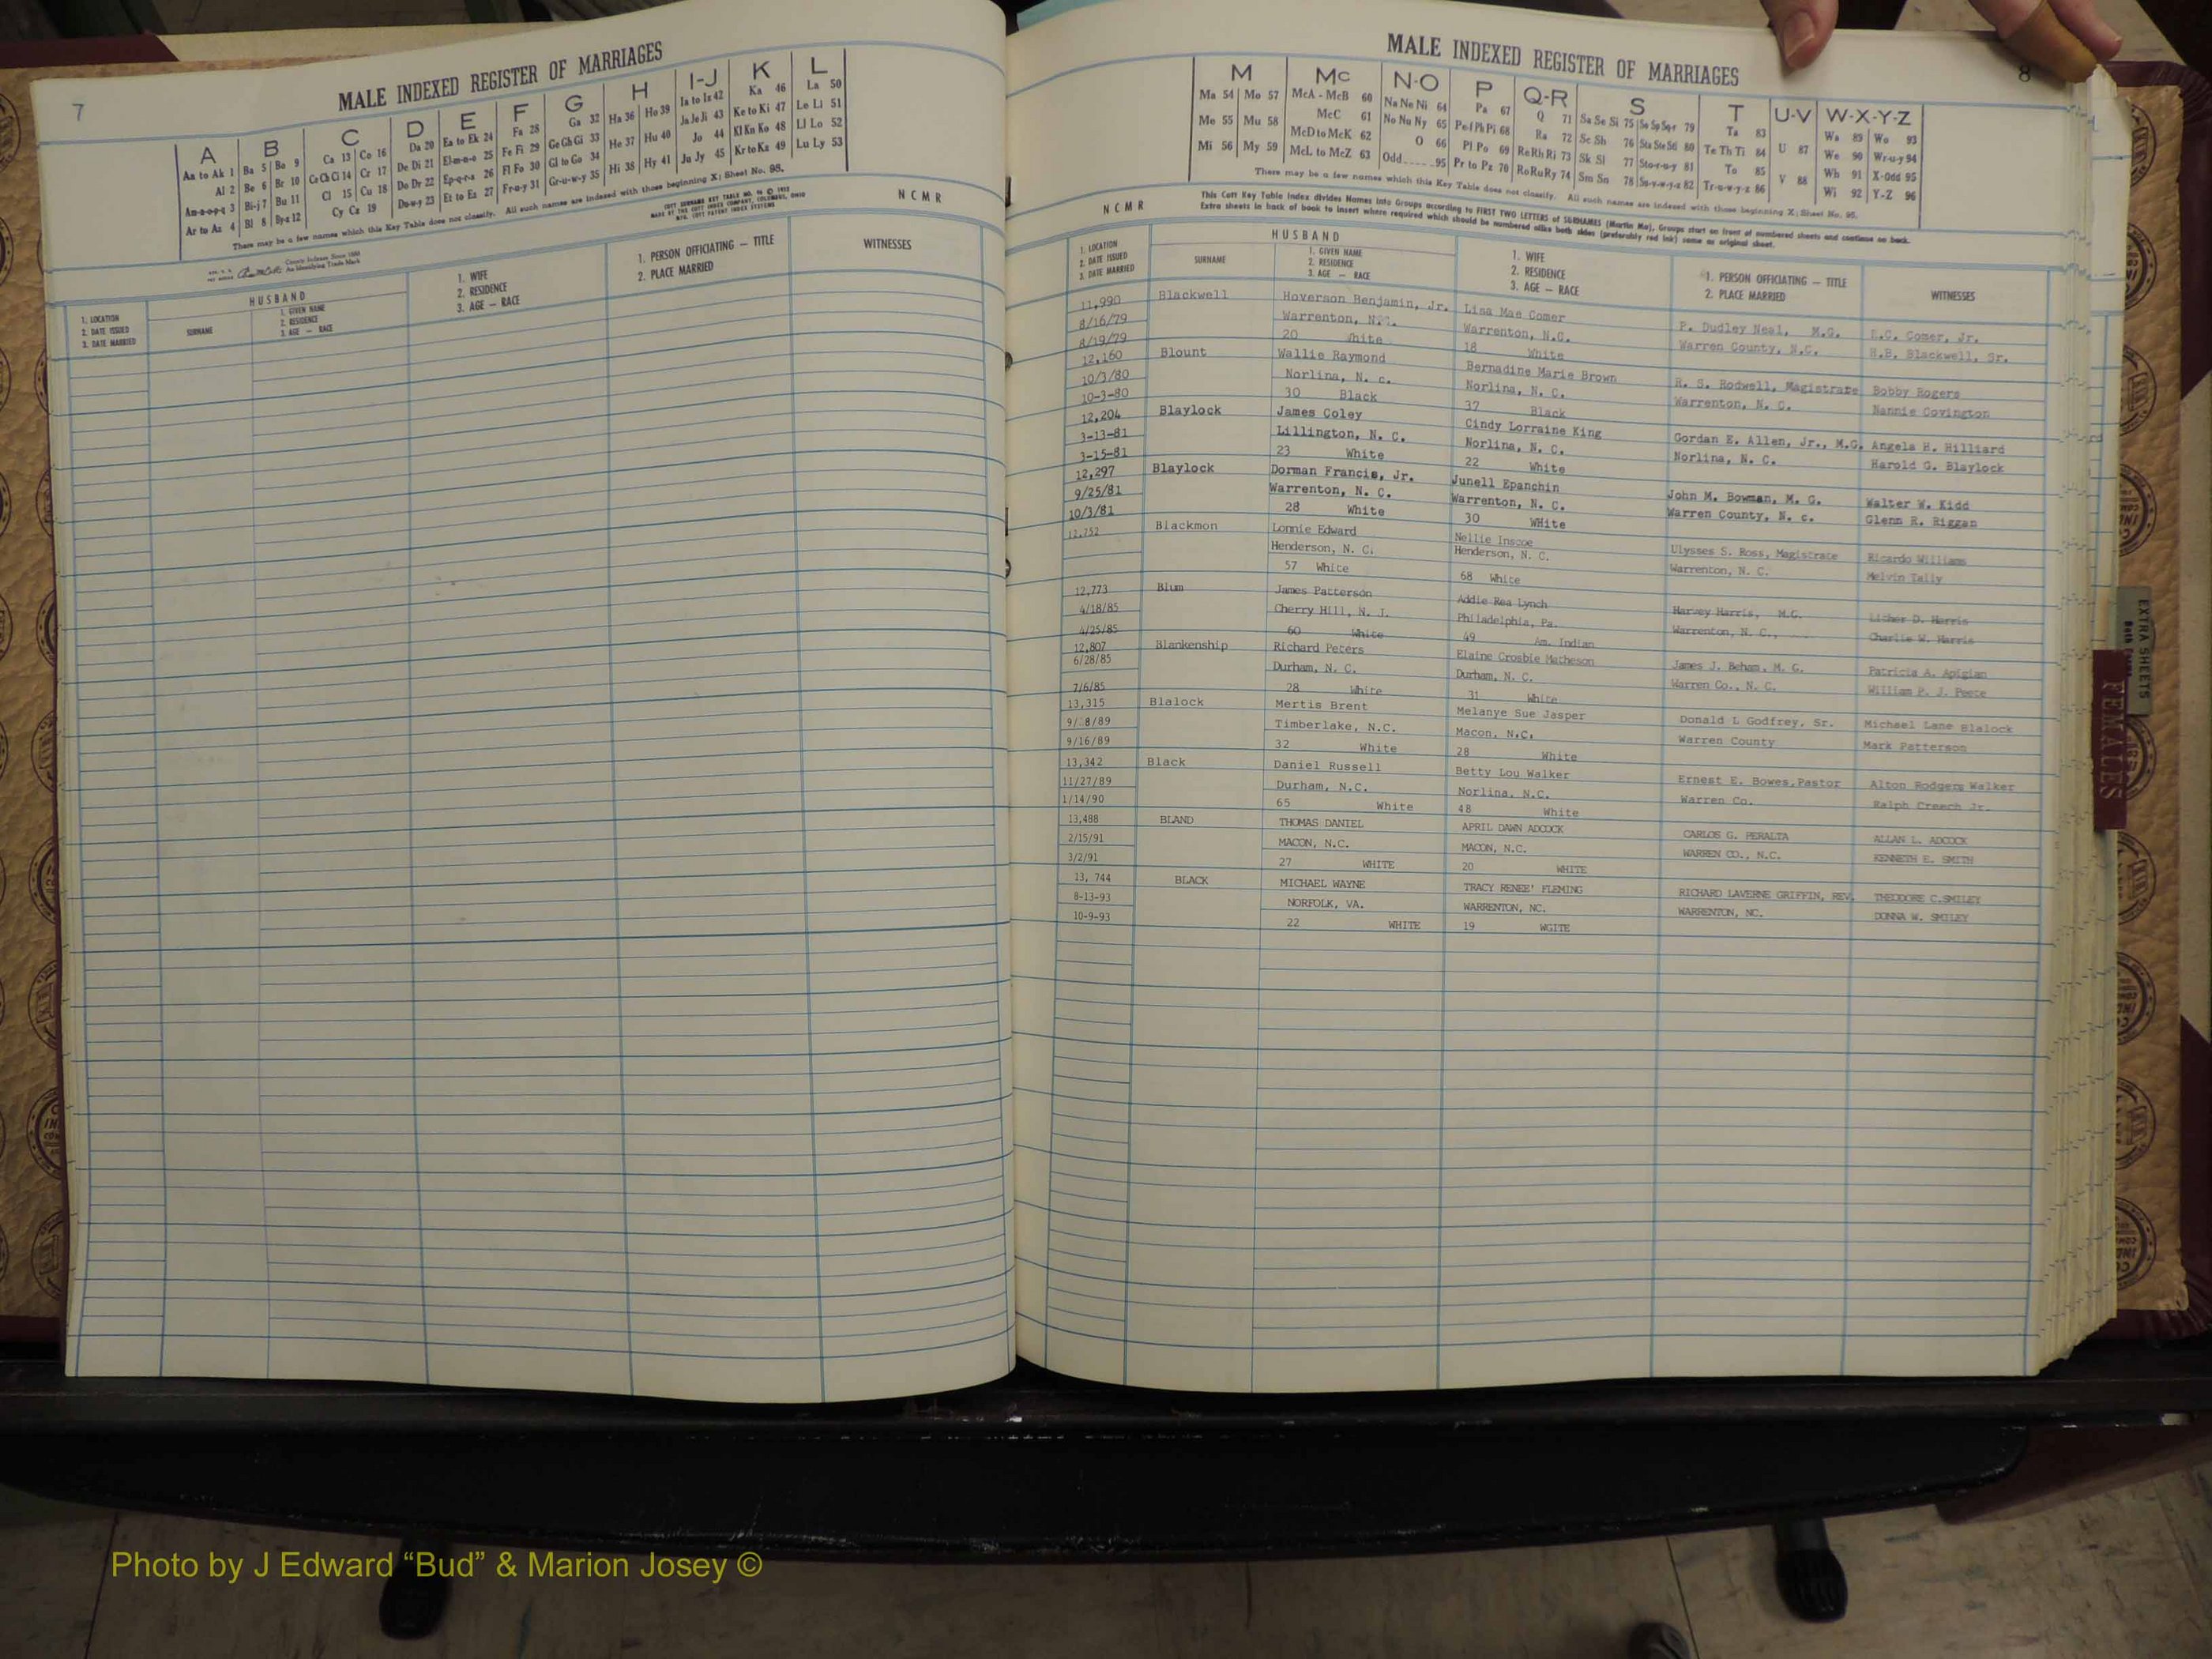 7
MALE INDEXED REGISTER OF MARRIAGES
A B C D E F G H I-J K L
Aa to Ak 1 Ba 5 Bo 9 Ca 13 Co 16 Da 20 Ea to Ek 24 Fa 28 Ga 32 Ha 36 Ho 39 Ia to Iz 42 Ka 46 La 50
Al 2 Be 6 Br 10 Ce Ch Ci 14 Cr 17 De Di 21 El-m-n-o 25 Fe Fi 29 Ge Gh Gi 33 He 37 Hu 40 Ja Je Ji 43 Ke to Ki 47 Le Li 51
Am-n-o-p-q 3 Bi-j 7 Bu 11 Cl 15 Cu 18 Do Dr 22 Ep-q-r-s 26 Fl Fo 30 Gl to Go 34 Hi 38 Hy 41 Jo 44 Kl Kn Ko 48 Ll Lo 52
Ar to Az 4 Bl 8 By-z 12 Cy Cz 19 Du-w-y 23 Et to Ez 27 Fr-u-y 31 Gr-u-w-y 35 Ju Jy 45 Kr to Kz 49 Lu Ly 53
There may be a few names which this Key Table does not classify. All such names are indexed with those beginning X; Sheet No. 95.
County Indexes Since 1888
An Identifying Trade Mark
COTT SURNAME KEY TABLE NO.
MADE BY THE COTT INDEX COMPANY, COLUMBUS, OHIO
MFG. COTT PATENT INDEX SYSTEMS
N C M R
1. LOCATION
2. DATE ISSUED
3. DATE MARRIED
HUSBAND
SURNAME
1. GIVEN NAME
2. RESIDENCE
3. AGE — RACE
1. WIFE
2. RESIDENCE
3. AGE — RACE
1. PERSON OFFICIATING — TITLE
2. PLACE MARRIED
WITNESSES
MALE INDEXED REGISTER OF MARRIAGES
8
M Mc N-O P Q-R S T U-V W-X-Y-Z
Ma 54 Mo 57 McA - McB 60 Na Ne Ni 64 Pa 67 Q 71 Sa Se Si 75 So Sp Sq-r 79 Ta 83 U 87 Wa 89 Wo 93
Me 55 Mu 58 McC 61 No Nu Ny 65 Pe Pf Ph Pi 68 Ra 72 Sc Sh 76 Sta Ste Sti 80 Te Th Ti 84 V 88 We 90 Wr-u-y 94
Mi 56 My 59 McD to McK 62 O 66 Pl Po 69 Re Rh Ri 73 Sk Sl 77 Sto-r-u-y 81 To 85 Wh 91 X-Odd 95
McL to McZ 63 Odd 95 Pr to Pz 70 Ro Ru Ry 74 Sm Sn 78 Su-v-w-y-z 82 Tr-u-w-y-z 86 Wi 92 Y-Z 96
There may be a few names which this Key Table does not classify. All such names are indexed with those beginning X; Sheet No. 95.
N C M R
This Cott Key Table Index divides Names into Groups according to FIRST TWO LETTERS of SURNAMES (Martin Ma), Groups start on front of numbered sheets and continue on back.
Extra sheets in back of book to insert where required which should be numbered alike both sides (preferably red ink) same as original sheet.
1. LOCATION
2. DATE ISSUED
3. DATE MARRIED
HUSBAND
SURNAME
1. GIVEN NAME
2. RESIDENCE
3. AGE — RACE
1. WIFE
2. RESIDENCE
3. AGE — RACE
1. PERSON OFFICIATING — TITLE
2. PLACE MARRIED
WITNESSES
11,990 Blackwell Hoverson Benjamin, Jr. Lisa Mae Comer P. Dudley Neal, M.G. E.C. Comer, Jr.
8/16/79 Warrenton, N.C. Warrenton, N.C. Warren County, N.C. H.B. Blackwell, Sr.
8/19/79 20 White 18 White
12,160 Blount Wallie Raymond Bernadine Marie Brown R. S. Rodwell, Magistrate Bobby Rogers
10/3/80 Norlina, N. c. Norlina, N. C. Warrenton, N. C. Nannie Covington
10-3-80 30 Black 37 Black
12,204 Blaylock James Coley Cindy Lorraine King Gordan E. Allen, Jr., M.G. Angela H. Hilliard
3-13-81 Lillington, N. C. Norlina, N. C. Norlina, N. C. Harold G. Blaylock
3-15-81 23 White 22 White
12,297 Blaylock Dorman Francis, Jr. Junell Epanchin John M. Bowman, M. G. Walter W. Kidd
9/25/81 Warrenton, N. C. Warrenton, N. C. Warren County, N. c. Glenn R. Riggan
10/3/81 28 White 30 WHite
12,752 Blackmon Lonnie Edward Nellie Inscoe Ulysses S. Ross, Magistrate Ricardo Williams
Henderson, N. C. Henderson, N. C. Warrenton, N. C. Melvin Tally
57 White 68 White
12,773 Blum James Patterson Addie Rea Lynch Harvey Harris, M.G. Licher D. Harris
4/18/85 Cherry Hill, N. J. Philadelphia, Pa. Warrenton, N. C., Charlie W. Harris
4/25/85 60 White 49 Am. Indian
12,807 Blankenship Richard Peters Elaine Crosbie Matheson James J. Beham, M. G. Patricia A. Apigian
6/28/85 Durham, N. C. Durham, N. C. Warren Co., N. C. William P. J. Peete
7/6/85 28 White 31 White
13,315 Blalock Mertis Brent Melanye Sue Jasper Donald L Godfrey, Sr. Michael Lane Blalock
9/ 8/89 Timberlake, N.C. Macon, N.C. Warren County Mark Patterson
9/16/89 32 White 28 White
13,342 Black Daniel Russell Betty Lou Walker Ernest E. Bowes, Pastor Alton Rodgers Walker
11/27/89 Durham, N.C. Norlina, N.C. Warren Co. Ralph Creech Jr.
1/14/90 65 White 48 White
13,488 BLAND THOMAS DANIEL APRIL DAWN ADCOCK CARLOS G. PERALTA ALLAN L. ADCOCK
2/15/91 MACON, N.C. MACON, N.C. WARREN CO., N.C. KENNETH E. SMITH
3/2/91 27 WHITE 20 WHITE
13, 744 BLACK MICHAEL WAYNE TRACY RENEE' FLEMING RICHARD LAVERNE GRIFFIN, REV. THEODORE C.SMILEY
8-13-93 NORFOLK, VA. WARRENTON, NC. WARRENTON, NC. DONNA W. SMILEY
10-9-93 22 WHITE 19 WGITE
EXTRA SHEETS
FEMALES
Photo by J Edward “Bud” & Marion Josey ©